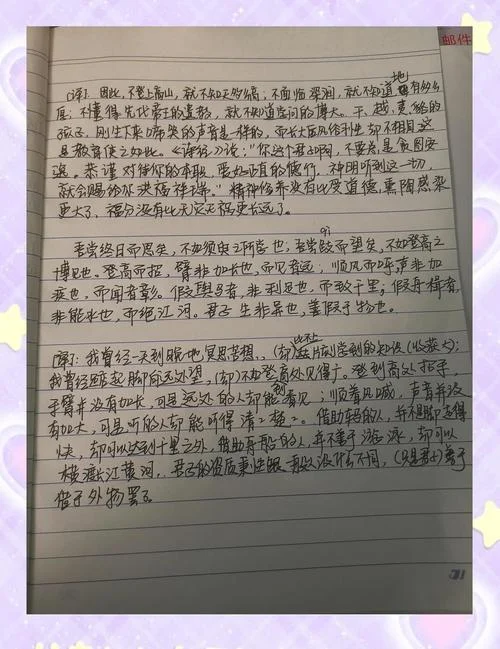 邮件
[译]：因此，不登上高山，就不知天多么高；不面临深涧，就不知道地有多么
厚；不懂得先代帝王的遗教，就不知道学问的博大。干、越、夷、貉的
孩子，刚生下来啼哭的声音是一样的，而长大后风俗习性却不相同，这
是教育使之如此。《诗经》说："你这个君子啊，不要总是贪图安
逸。恭谨对待你的本职，爱好正直的德行。神明听到这一切，
就会赐给你洪福祥瑞。"精神修养没有比受道德熏陶感染
更大了，福分没有比无灾无祸更长远了。
吾尝终日而思矣，不如须臾之所学也；吾尝跂而望矣，不如登高之
博见也。登高而招，臂非加长也，而见者远；顺风而呼，声非加
疾也，而闻者彰。假舆马者，非利足也，而致千里；假舟楫者，
非能水也，而绝江河。君子生非异也，善假于物也。
[译]：我曾经一天到晚地冥思苦想，(却)比不上片刻学到的知识(收获大)；
我曾经踮起脚向远处望，(却)不如登高处见得广。登到高处招手，
手臂并没有加长，可是远处的人却能看到；顺着风喊，声音并没
有加大，可是听的人却能听得清楚。借助车马的人，并不是脚走得
快，却可以达到千里之外，借助舟船的人，并不善于游泳，却可以
横渡长江黄河。君子的资质秉性跟一般人没什么不同，(只是君子)善于
借助外物罢了。